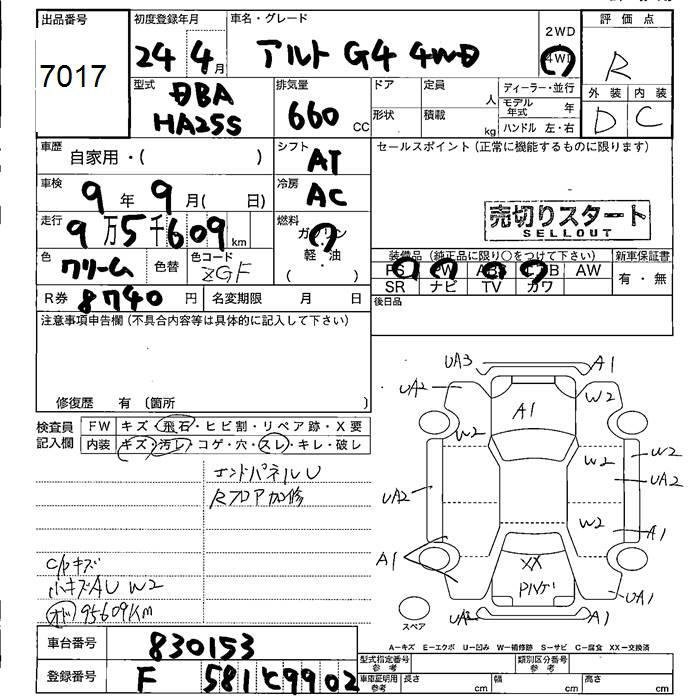 出品番号
7017
初度登録年月
24 4月
車名・グレード
アルト G4 4WD
2WD
4WD
評価点
R
外装 内装
D C
型式
DBA
HA25S
排気量
660 CC
ドア
形状
定員 人
積載 kg
ディーラー・並行
モデル年式 年
ハンドル 左・右
車歴 自家用・( )
シフト AT
セールスポイント(正常に機能するものに限ります)
車検 9年 9月( 日)
冷房 AC
売切りスタート
SELLOUT
走行 9万5千609km
燃料 ガソリン
軽・油
( )
色 クリーム 色替
色コード ZGF
装備品(純正品に限り○をつけて下さい)
新車保証書
PS PW ABS エアB AW
SR ナビ TV カワ
有・無
R券 8740円
名変期限 月 日
後日品
注意事項申告欄(不具合内容等は具体的に記入して下さい)
修復歴 有(箇所 )
検査員記入欄
FW キズ・飛石・ヒビ割・リペア跡・X要
内装 キズ・汚レ・コゲ・穴・スレ・キレ・破レ
エンドパネルU
Rフロア加修
C/Pキズ
小キズAU W2
オド 95609Km
UA3
A1
UA2
W2
A1
W2
W2
W2
UA2
UA2
W2
A1
A1
XX
UA1
UA2
A1
スペア
A-キズ E-エクボ U-凹み W-補修跡 S-サビ C-腐食 XX-交換済
車台番号 830153
登録番号 F 581 と 9902
型式指定番号 参考
類別区分番号 参考
車庫証明用 参考
長さ cm
幅 cm
高さ cm